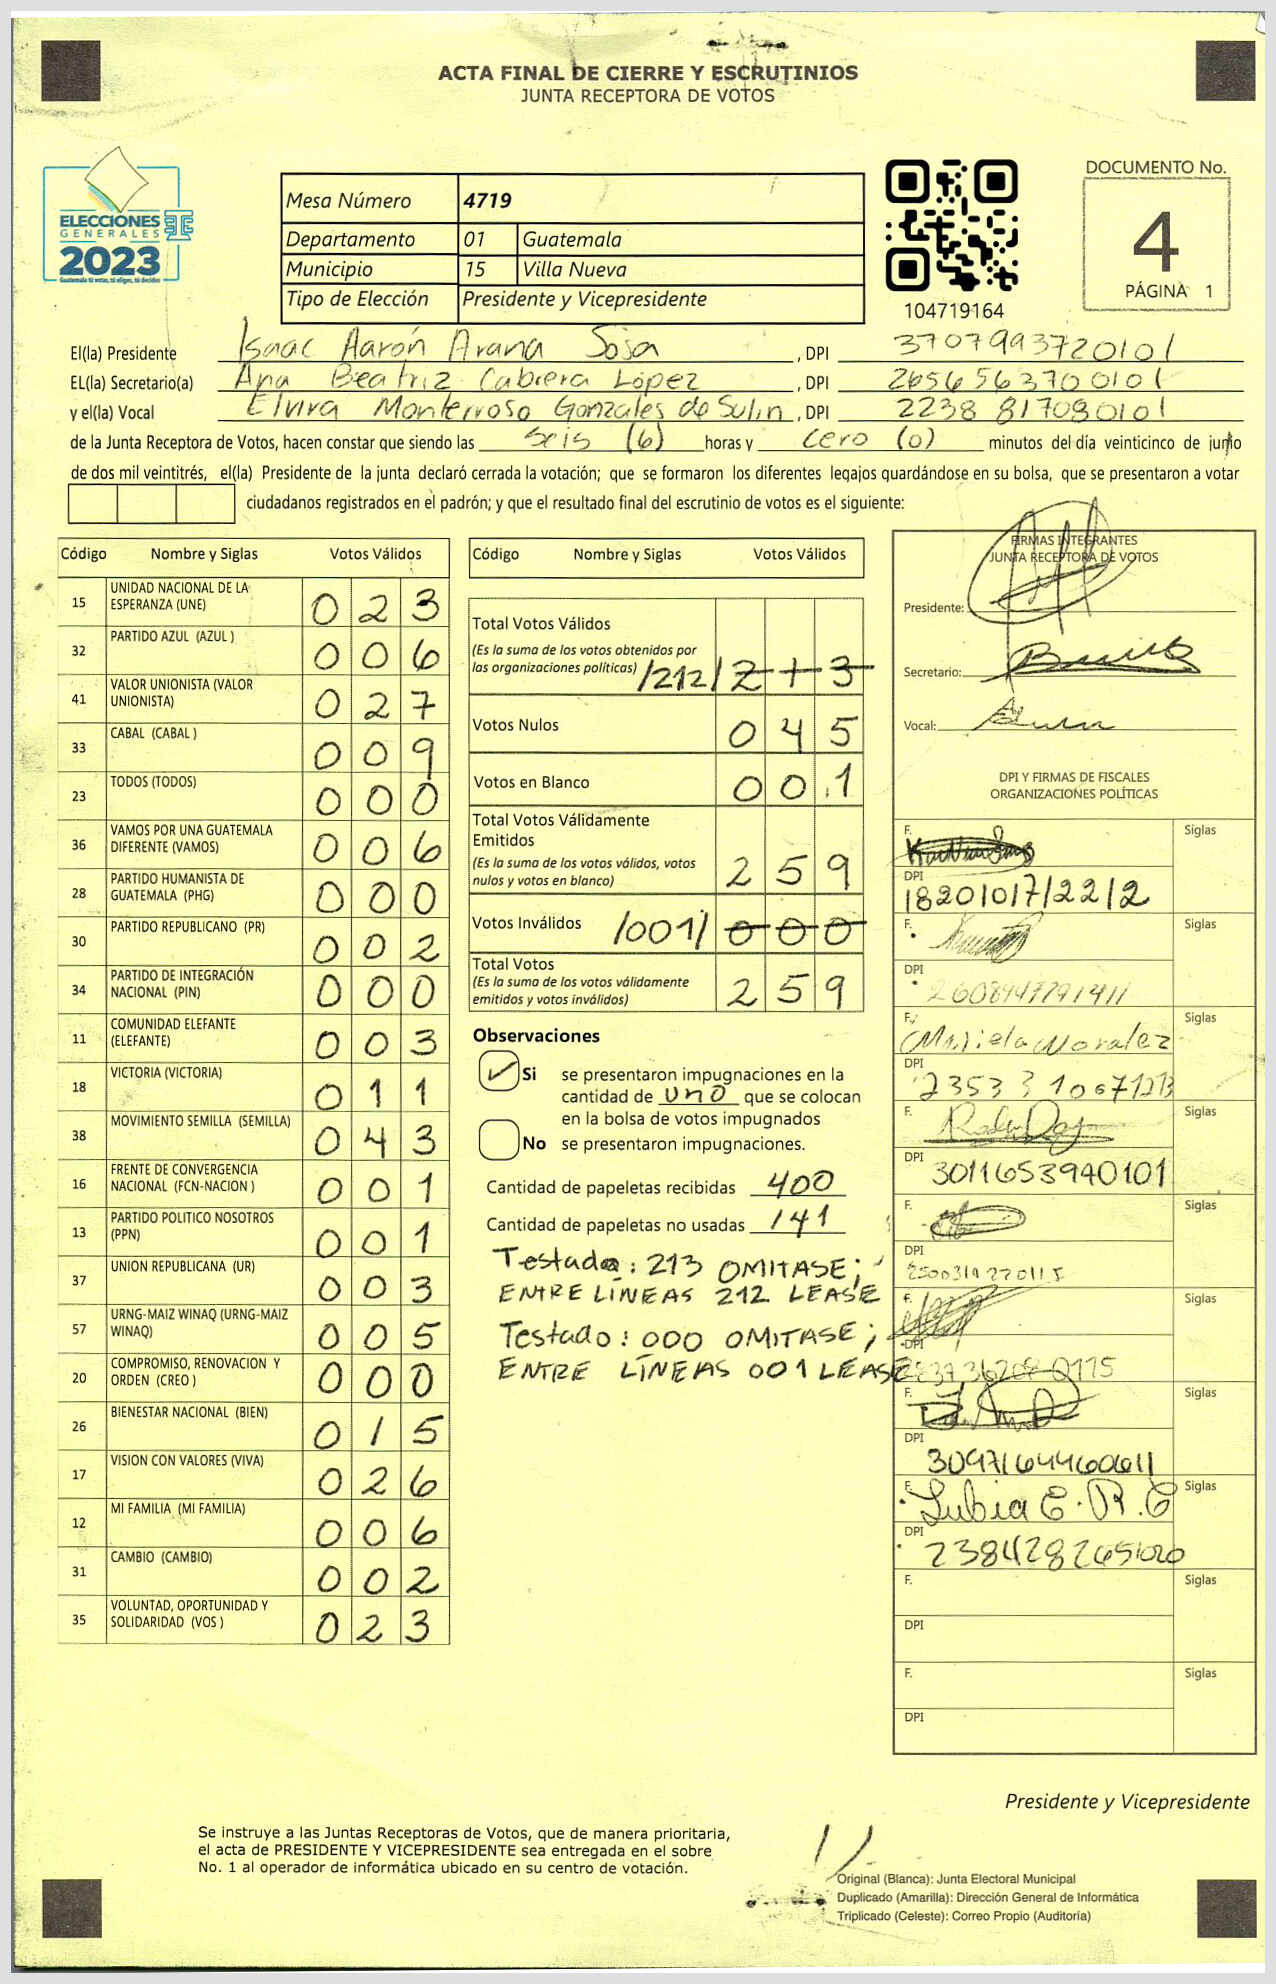 ACTA FINAL DE CIERRE Y ESCRUTINIOS
JUNTA RECEPTORA DE VOTOS
ELECCIONES
GENERALES
2023
Guatemala tú votas, tú eliges, tú decides
Mesa Número 4719
Departamento 01 Guatemala
Municipio 15 Villa Nueva
Tipo de Elección Presidente y Vicepresidente
104719164
DOCUMENTO No.
4
PÁGINA 1
El(la) Presidente Isaac Aarón Arana Sosa , DPI 3707993720101
EL(la) Secretario(a) Ana Beatriz Cabrera López , DPI 2656563700101
y el(la) Vocal Elvira Monterroso Gonzales de Sulin , DPI 2238 817080101
de la Junta Receptora de Votos, hacen constar que siendo las seis (6) horas y cero (0) minutos del día veinticinco de junio
de dos mil veintitrés, el(la) Presidente de la junta declaró cerrada la votación; que se formaron los diferentes legajos guardándose en su bolsa, que se presentaron a votar
ciudadanos registrados en el padrón; y que el resultado final del escrutinio de votos es el siguiente:
Código Nombre y Siglas Votos Válidos
15 UNIDAD NACIONAL DE LA ESPERANZA (UNE) 023
32 PARTIDO AZUL (AZUL ) 006
41 VALOR UNIONISTA (VALOR UNIONISTA) 027
33 CABAL (CABAL ) 009
23 TODOS (TODOS) 000
36 VAMOS POR UNA GUATEMALA DIFERENTE (VAMOS) 006
28 PARTIDO HUMANISTA DE GUATEMALA (PHG) 000
30 PARTIDO REPUBLICANO (PR) 002
34 PARTIDO DE INTEGRACIÓN NACIONAL (PIN) 000
11 COMUNIDAD ELEFANTE (ELEFANTE) 003
18 VICTORIA (VICTORIA) 011
38 MOVIMIENTO SEMILLA (SEMILLA) 043
16 FRENTE DE CONVERGENCIA NACIONAL (FCN-NACION ) 001
13 PARTIDO POLITICO NOSOTROS (PPN) 001
37 UNION REPUBLICANA (UR) 003
57 URNG-MAIZ WINAQ (URNG-MAIZ WINAQ) 005
20 COMPROMISO, RENOVACION Y ORDEN (CREO ) 000
26 BIENESTAR NACIONAL (BIEN) 015
17 VISION CON VALORES (VIVA) 026
12 MI FAMILIA (MI FAMILIA) 006
31 CAMBIO (CAMBIO) 002
35 VOLUNTAD, OPORTUNIDAD Y SOLIDARIDAD (VOS ) 023
Código Nombre y Siglas Votos Válidos
Total Votos Válidos
(Es la suma de los votos obtenidos por
las organizaciones políticas) /212/ 213
Votos Nulos 045
Votos en Blanco 001
Total Votos Válidamente
Emitidos
(Es la suma de los votos válidos, votos
nulos y votos en blanco) 259
Votos Inválidos /001/ 000
Total Votos
(Es la suma de los votos válidamente
emitidos y votos inválidos) 259
Observaciones
Si se presentaron impugnaciones en la
cantidad de uno que se colocan
en la bolsa de votos impugnados
No se presentaron impugnaciones.
Cantidad de papeletas recibidas 400
Cantidad de papeletas no usadas 141
Testado: 213 OMITASE;
ENTRE LINEAS 212 LEASE
Testado: 000 OMITASE;
ENTRE LÍNEAS 001 LEASE
FIRMAS INTEGRANTES
JUNTA RECEPTORA DE VOTOS
Presidente:
Secretario:
Vocal:
DPI Y FIRMAS DE FISCALES
ORGANIZACIONES POLÍTICAS
F. Siglas
DPI
18201017/2212
F. Siglas
DPI
2608947791411
F. Mariela Morales Siglas
DPI
2353 3 10671213
F. Siglas
DPI
3011653940101
F. Siglas
DPI
F. Siglas
DPI
F. Siglas
DPI
3097164460611
F. Lubia E. R. C Siglas
DPI
F. Siglas
DPI
F. Siglas
DPI
Presidente y Vicepresidente
Se instruye a las Juntas Receptoras de Votos, que de manera prioritaria,
el acta de PRESIDENTE Y VICEPRESIDENTE sea entregada en el sobre
No. 1 al operador de informática ubicado en su centro de votación.
Original (Blanca): Junta Electoral Municipal
Duplicado (Amarilla): Dirección General de Informática
Triplicado (Celeste): Correo Propio (Auditoría)